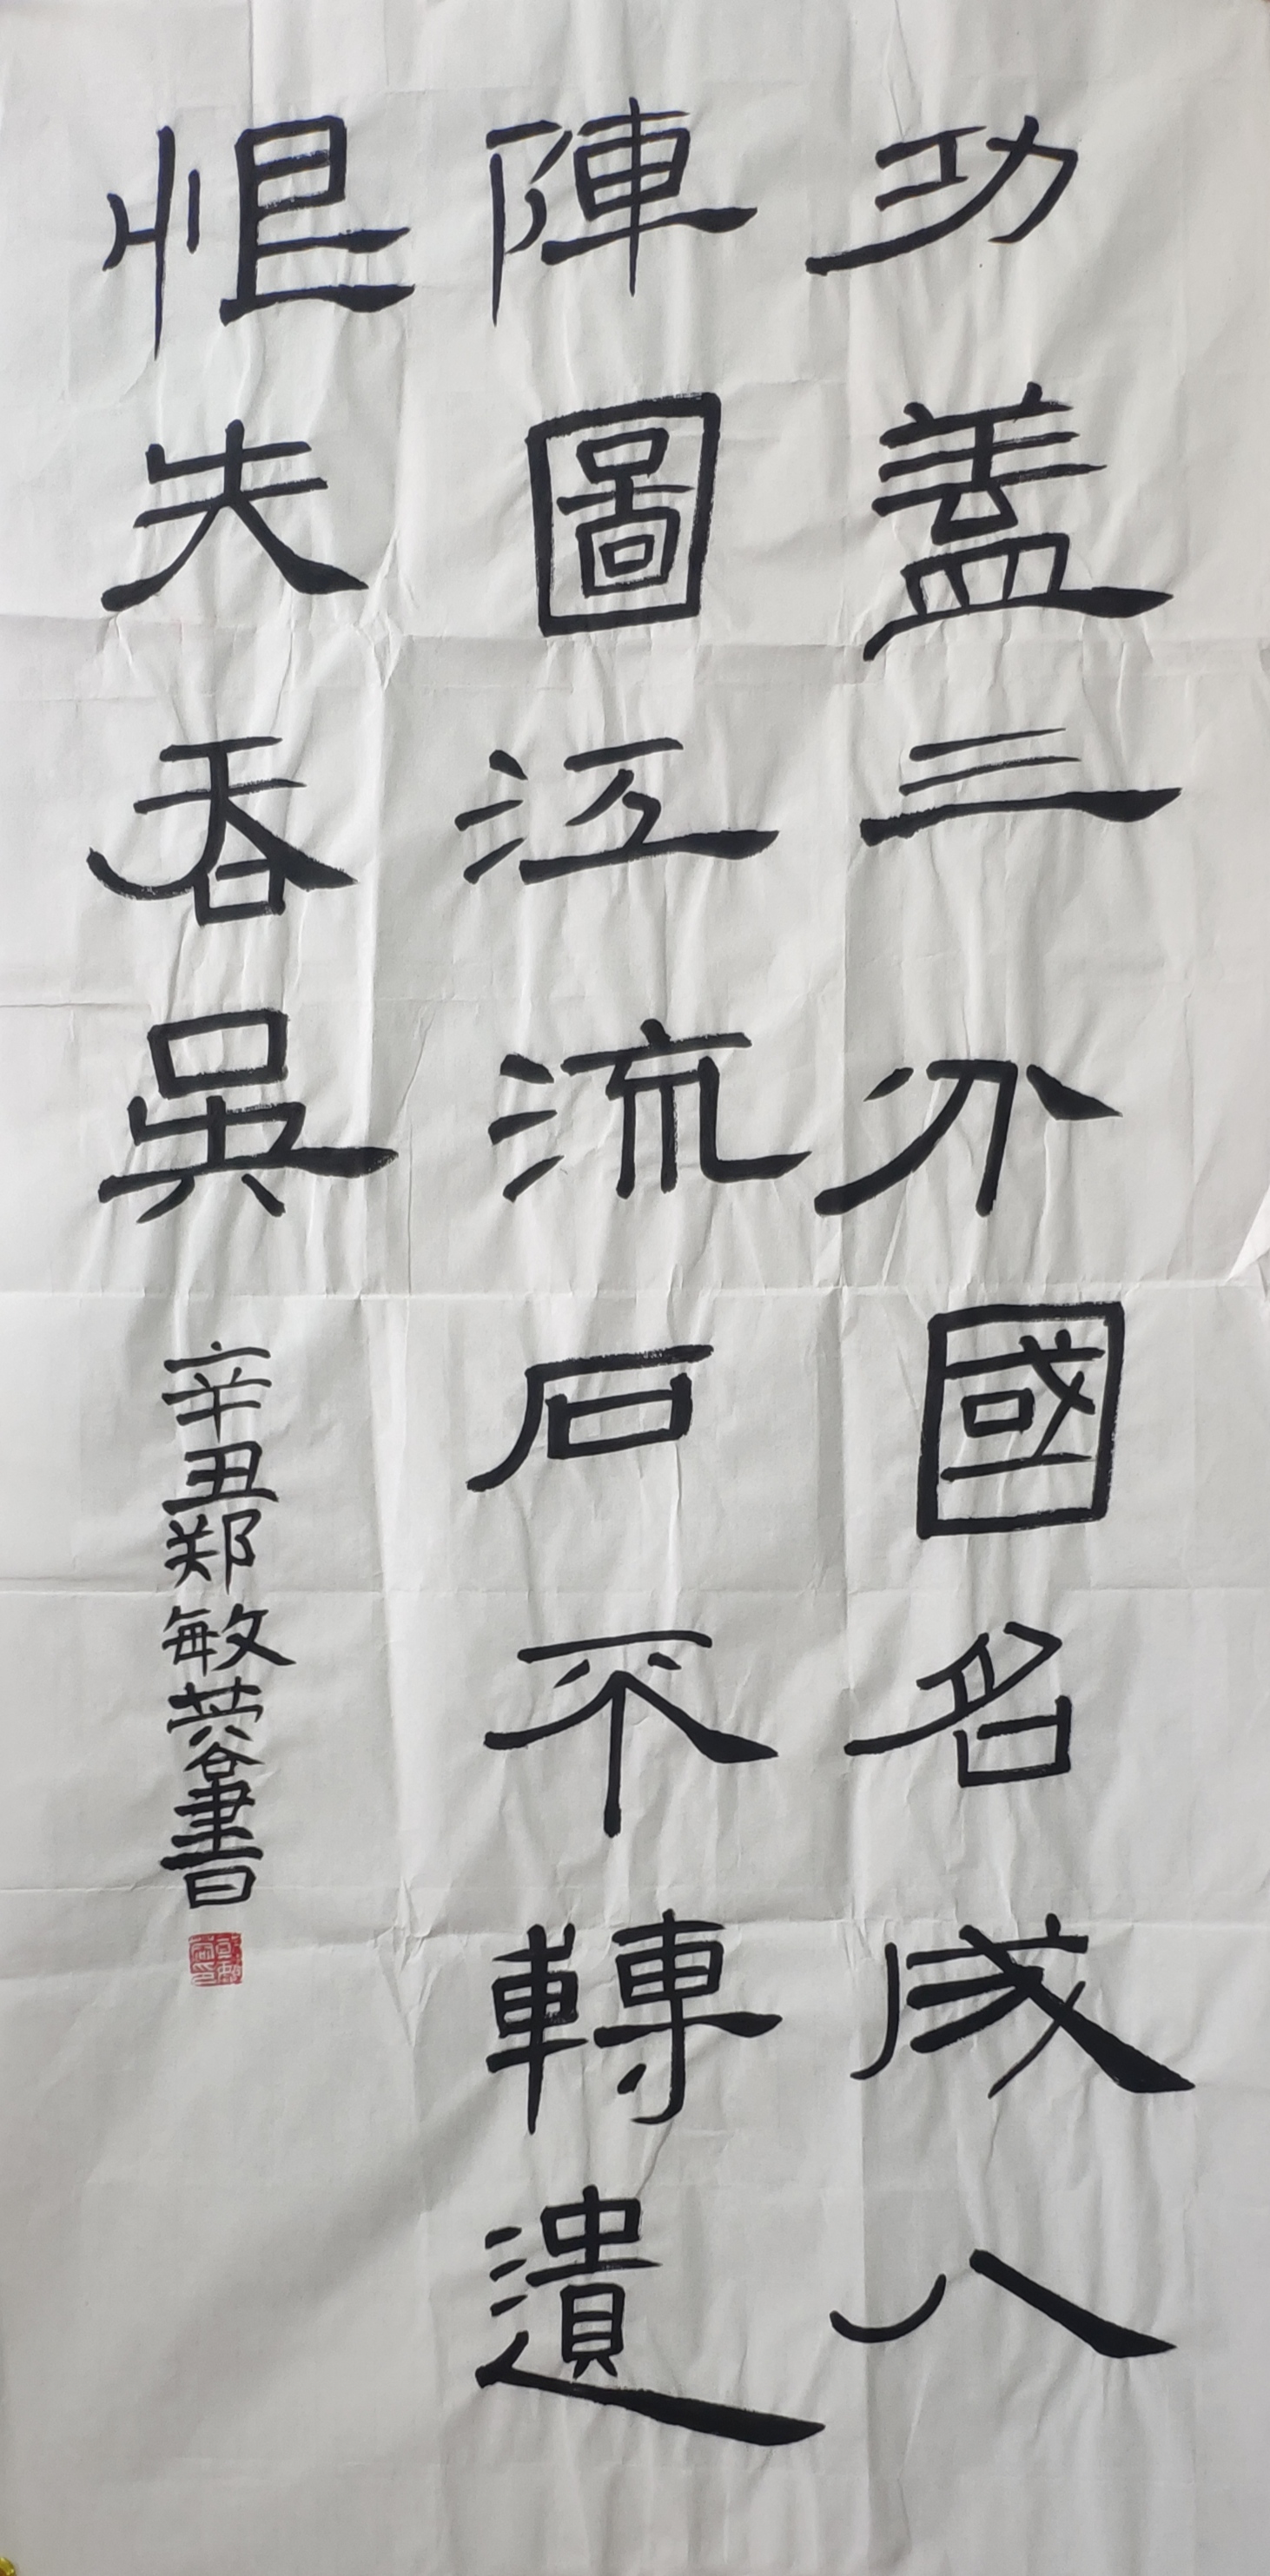 功盖三分國名成八
陣圖江流石不轉遺
恨失吞吳
辛丑郑敏英谷書